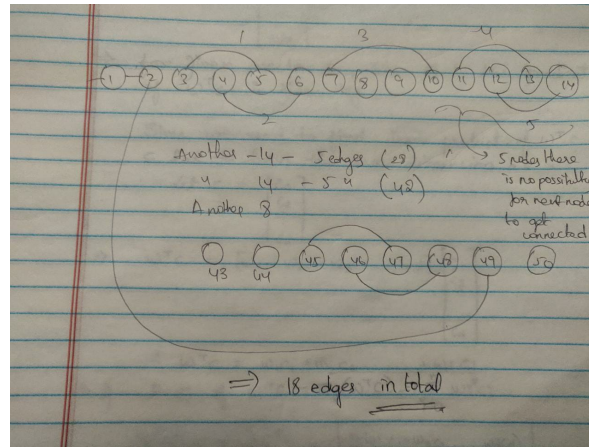 1 3 4
1 2 3 4 5 6 7 8 9 10 11 12 13 14
2 5
Another - 14 - 5 edges (28)
" 14 - 5 " (42)
Another 8
→ 5 nodes there
is no possibility
for new node
to get
connected
45 46 47 48 49 50
43 44
⇒ 18 edges in total